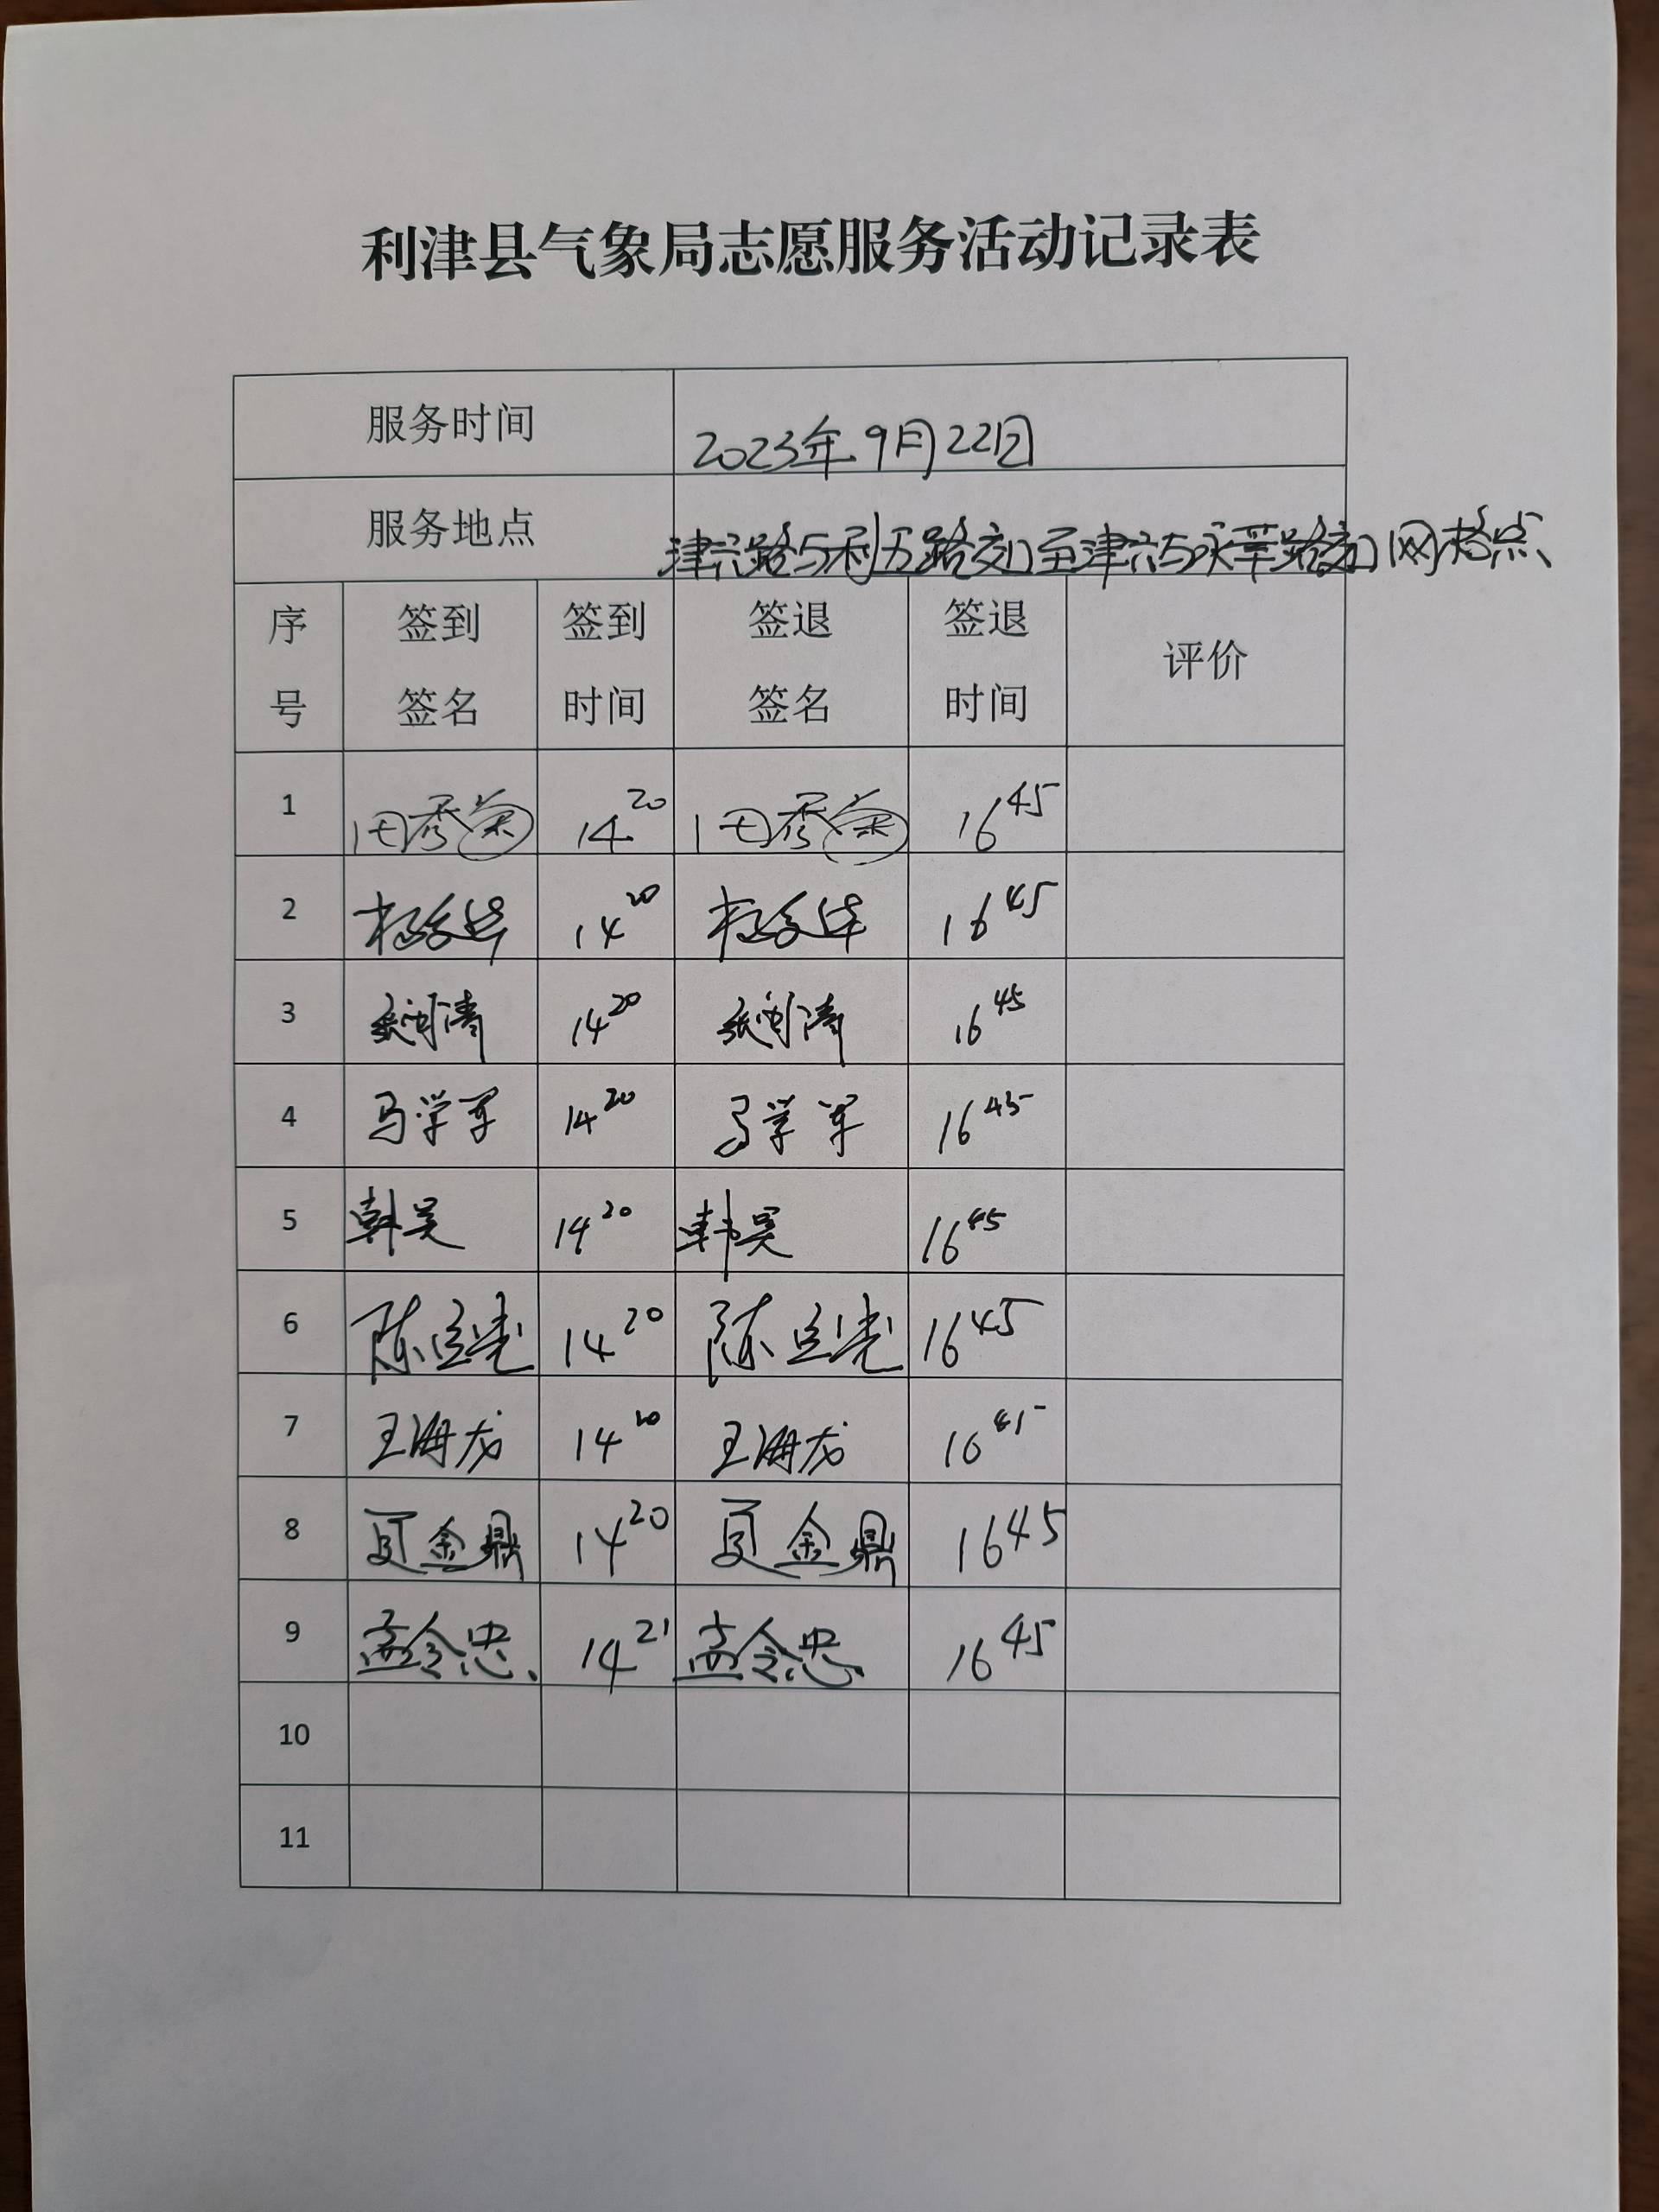 利津县气象局志愿服务活动记录表
服务时间 2023年9月22日
服务地点 津六路与利五路交口至津六与永莘路交口网格点
序号 签到签名 签到时间 签退签名 签退时间 评价
1 田秀 14 20 田秀 16 45
2 14 20 16 45
3 清 14 20 清 16 45
4 马学军 14 20 马学军 16 45
5 韩昊 14 20 韩昊 16 45
6 陈立光 14 20 陈立光 16 45
7 王海龙 14 20 王海龙 16 45
8 夏金鼎 14 20 夏金鼎 16 45
9 孟令忠 14 21 孟令忠 16 45
10
11